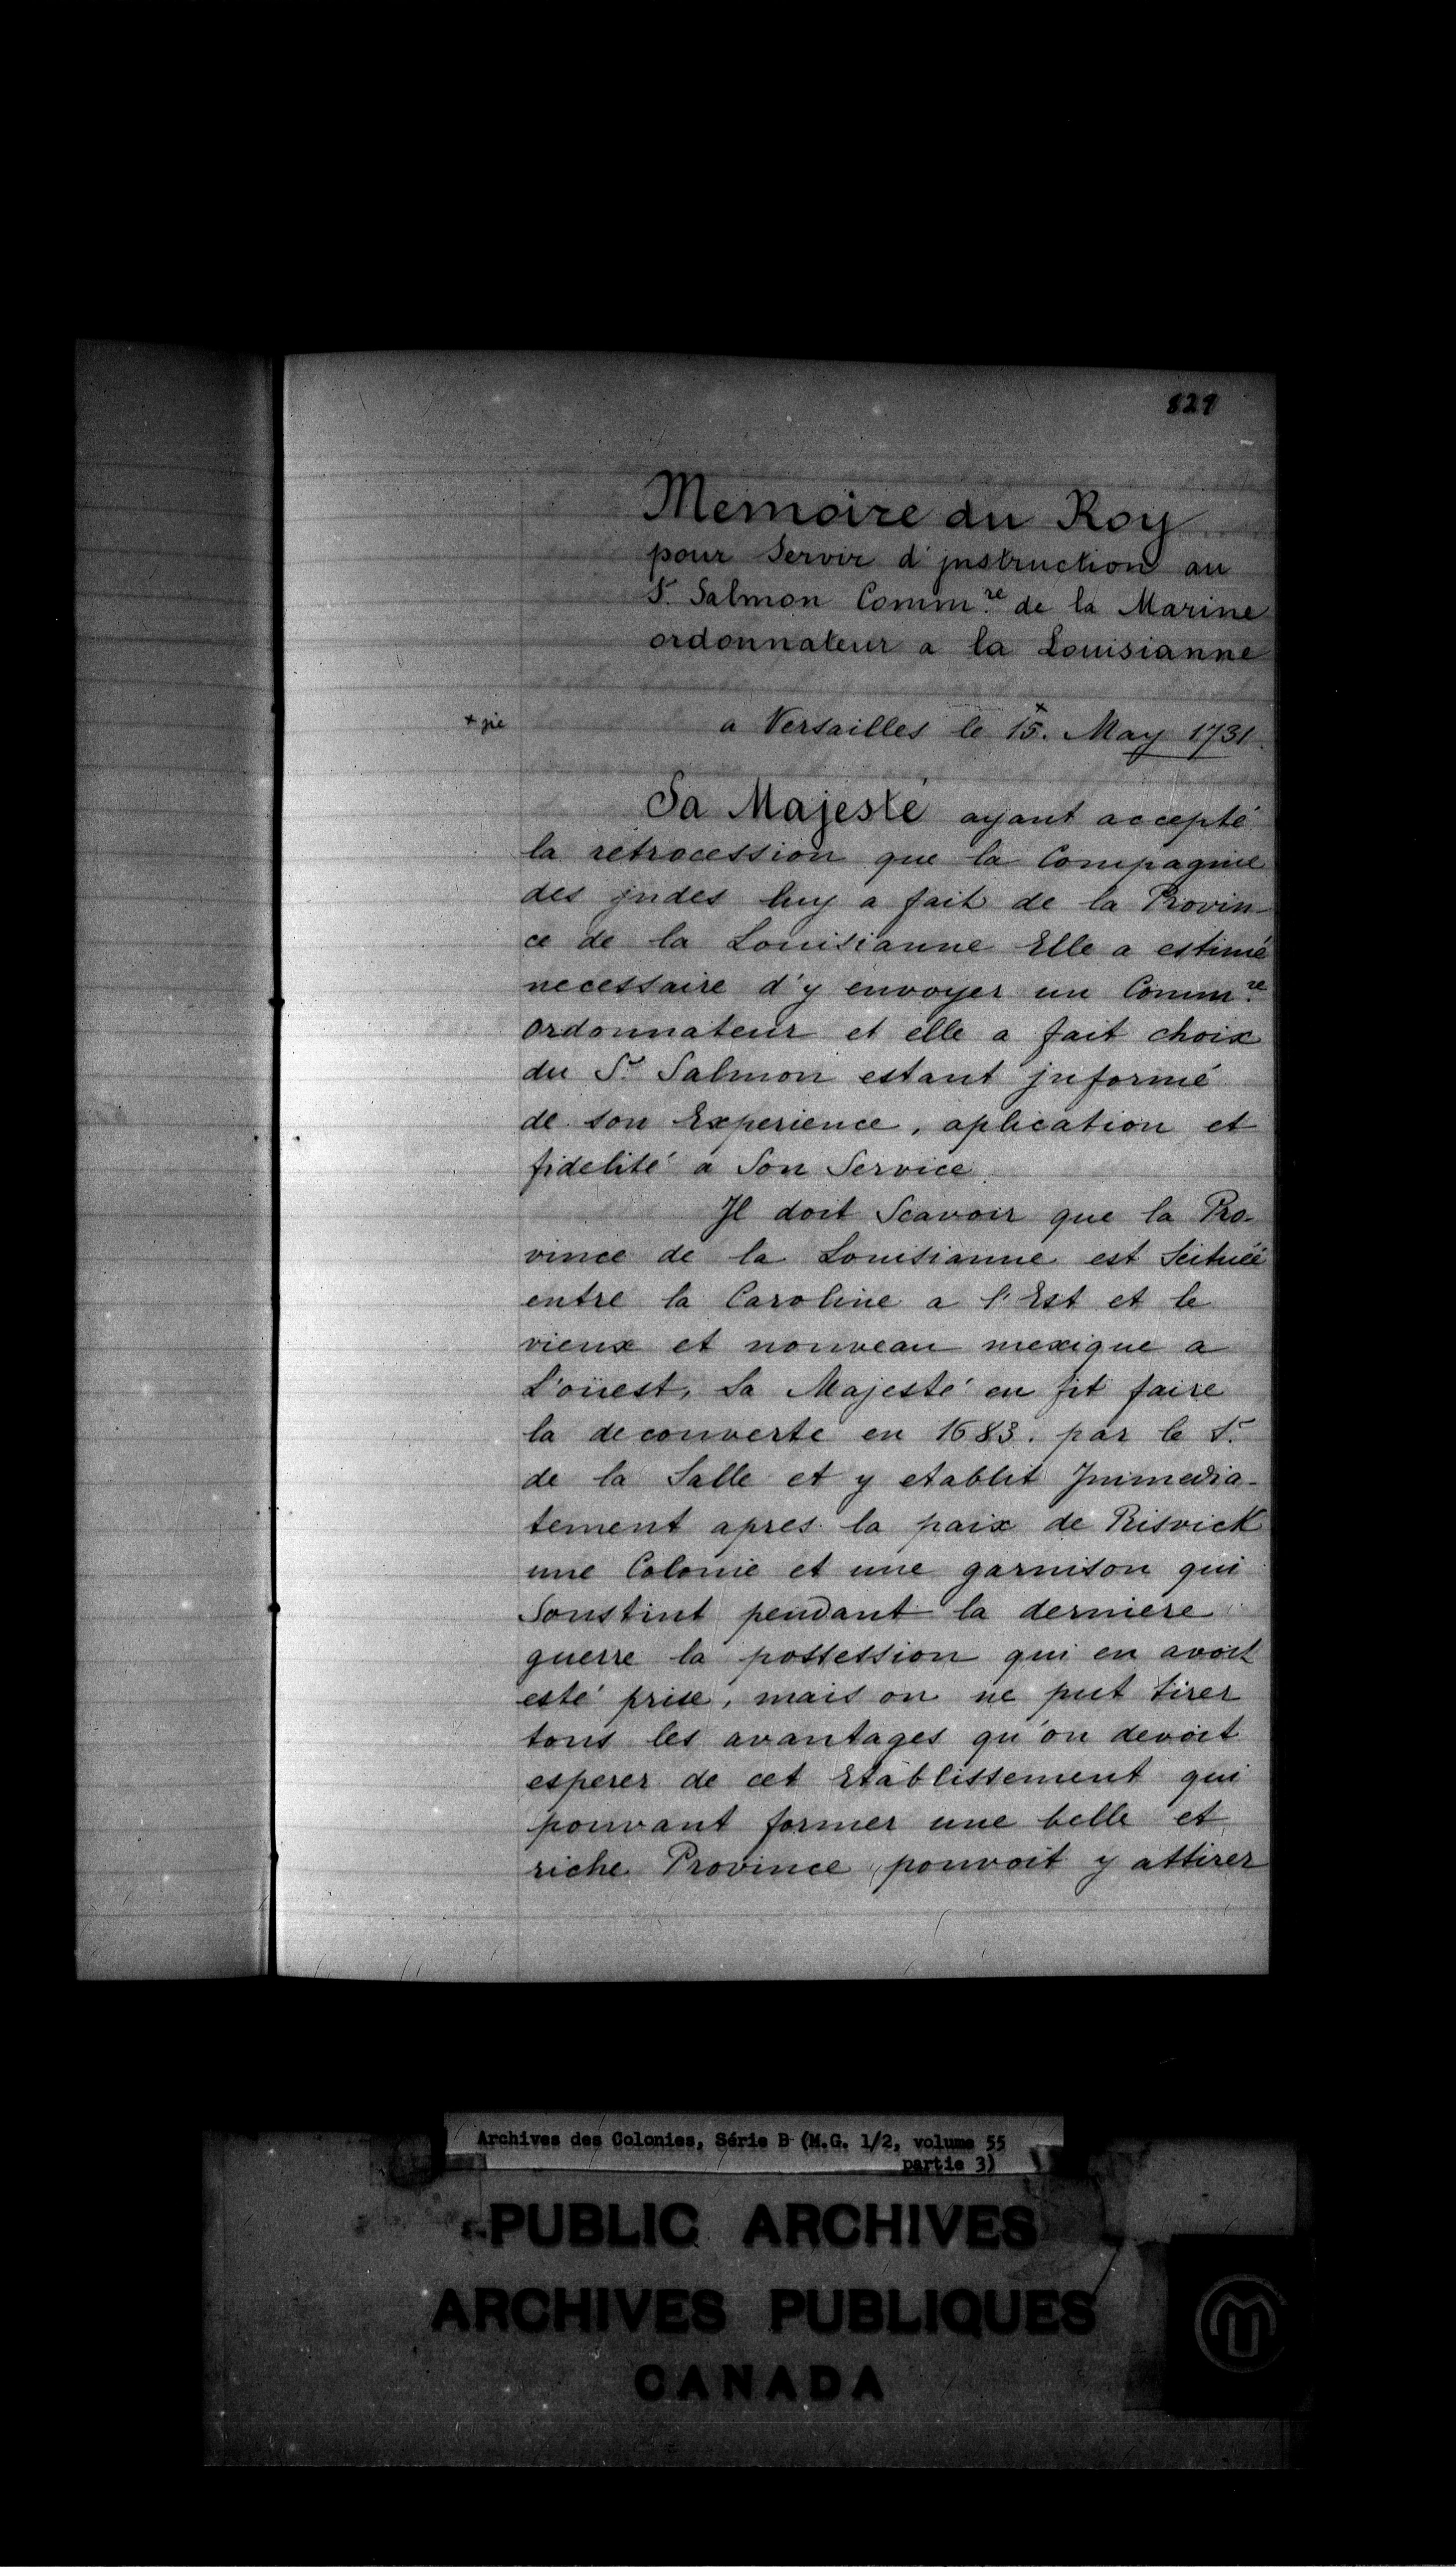 829
Memoire du Roy
pour Servir d'jnstruction au
Sr. Salmon Commre. de la Marine
ordonnateur a la Louisianne
a Versailles le 15. May 1731.
Sa Majesté ayant accepté
la retrocession que la Compagnie
des jndes luy a fait de la Provin-
ce de la Louisianne Elle a estimé
necessaire d'y envoyer un Commre.
ordonnateur et elle a fait choix
du Sr. Salmon estant jnformé
de son Experience, aplication et
fidelité a Son Service.
Jl doit Scavoir que la Pro-
vince de la Louisianne est Scituée
entre la Caroline a l'Est et le
vieux et nouveau mexique a
L'oüest, Sa Majesté en fit faire
la decouverte en 1683. par le Sr.
de la Salle et y etablit Jmmedia-
tement apres la paix de Risvick
une Colonie et une garnison qui
Soustint pendant la derniere
guerre la possession qui en avoit
esté prise, mais on ne put tirer
tous les avantages qu'on devoit
esperer de cet Etablissement qui
pouvant former une belle et
riche Province, pouvoit y attirer
Archives des Colonies, Série B (M.G. 1/2, volume 55
partie 3)
PUBLIC ARCHIVES
ARCHIVES PUBLIQUES
CANADA